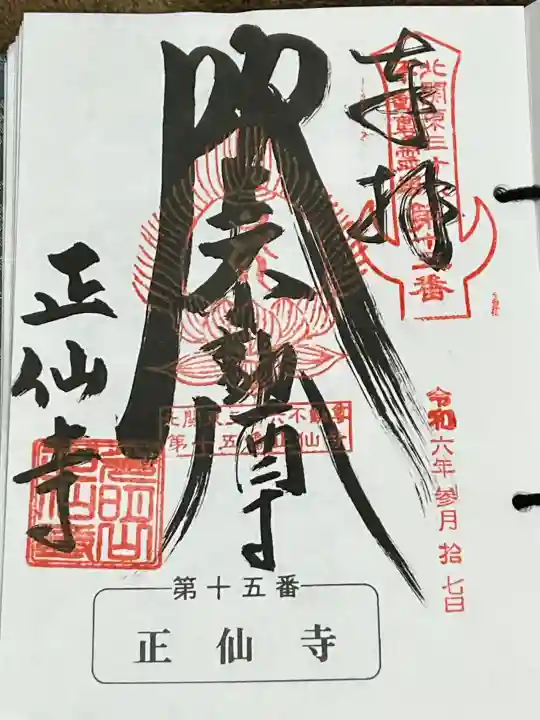 奉拝
北関東三十六
不動尊霊場第十五番
令和六年参月拾七日
不動尊
北関東三十六不動尊
第十五番正仙寺
正仙寺
第十五番
正仙寺